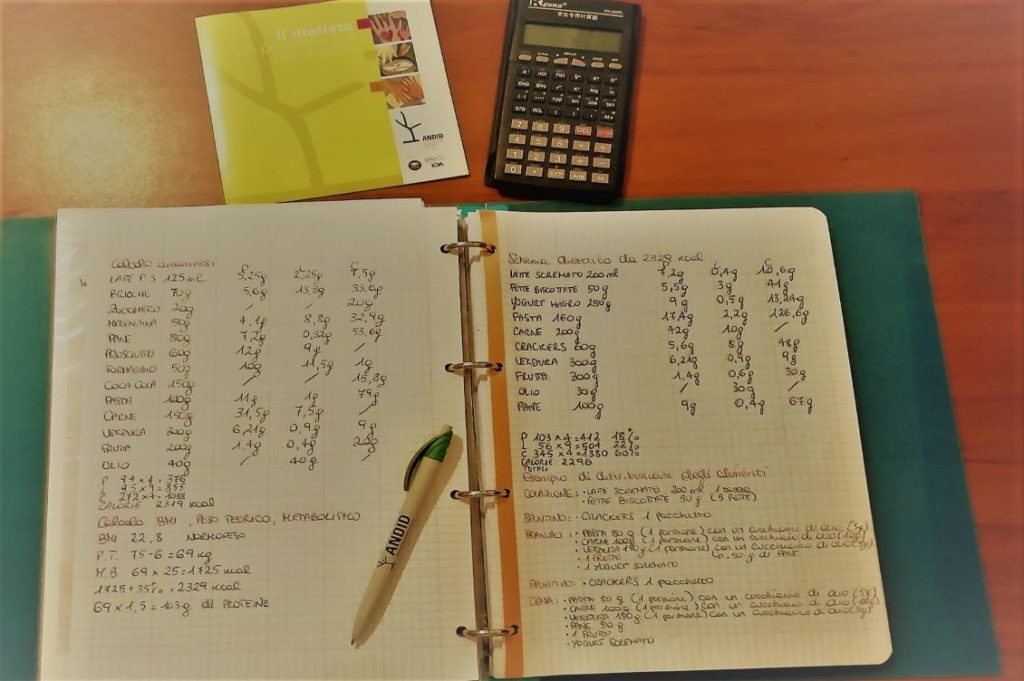 Il dietista
ANDID
KENKO
Calcolo anamnesi
P L C
LATTE P S 125 ml 5,25g 2,25g 7,5g
BRIOCHE 70g 5,6g 13,3g
ZUCCHERO 20g / / 20g
MERENDINA 50g 4,1g 8,8g 32,9g
PANE 80g 7,2g 0,32g 53,6g
PROSCIUTTO 60g 12g 9g /
FORMAGGIO 50g 10g 11,5g 1g
COCA COLA 150g / /
PASTA 100g 11g 1g 79g
CARNE 150g 31,5g 7,5g /
VERDURA 200g 6,21g 0,9g 9g
FRUTTA 200g 1,4g 0,4g 20g
OLIO 40g / 40g /
P 94 x 4 = 376
L 95 x 9 = 855
C 272 x 4 = 1088
CALORIE 2319 kcal
Calcolo BMI, PESO TEORICO, METABOLISMO
BMI 22,8 NORMOPESO
P.T. 75-6 = 69 kg
M.B. 69 x 25 = 1725 kcal
1725 + 35% = 2329 kcal
69 x 1,5 = 103g di PROTEINE
ANDID
Schema dietetico da 2329 kcal
P L C
LATTE SCREMATO 200 ml 7,2g 0,4g 10,6g
FETTE BISCOTTATE 50g 5,5g 3g 41g
YOGURT MAGRO 250g 9g 0,5g 13,24g
PASTA 160g 17,4g 2,2g 126,6g
CARNE 200g 42g 10g /
CRACKERS 60g 5,6g 8g 48g
VERDURA 300g 6,21g 0,9g 9g
FRUTTA 300g 1,4g 0,6g 30g
OLIO 30g / 30g /
PANE 100g 9g 0,4g 67g
P 103 x 4 = 412 18%
L 56 x 9 = 504 22%
C 345 x 4 = 1380 60%
CALORIE 2296
TOTALI
Esempio di distribuzione degli alimenti
COLAZIONE: • LATTE SCREMATO 200 ml 1
• FETTE BISCOTTATE 50 g (5 FETTE)
SPUNTINO: • CRACKERS 1 pacchetto
PRANZO: • PASTA 80 g (1 porzione) con un cucchiaino di olio (5g)
• CARNE 100g (1 porzione) con un cucchiaio di olio
• VERDURA 150g (1 porzione) con un cucchiaino di olio
• 1 FRUTTO • 50 g di PANE
• 1 YOGURT SCREMATO
SPUNTINO: • CRACKERS 1 pacchetto
CENA: • PASTA 80 g (1 porzione) con un cucchiaino di olio (5g)
• CARNE 100g (1 porzione) con un cucchiaio di olio
• VERDURA 150g (1 porzione) con un cucchiaino di olio
• PANE 50 g
• 1 FRUTTO
• YOGURT SCREMATO